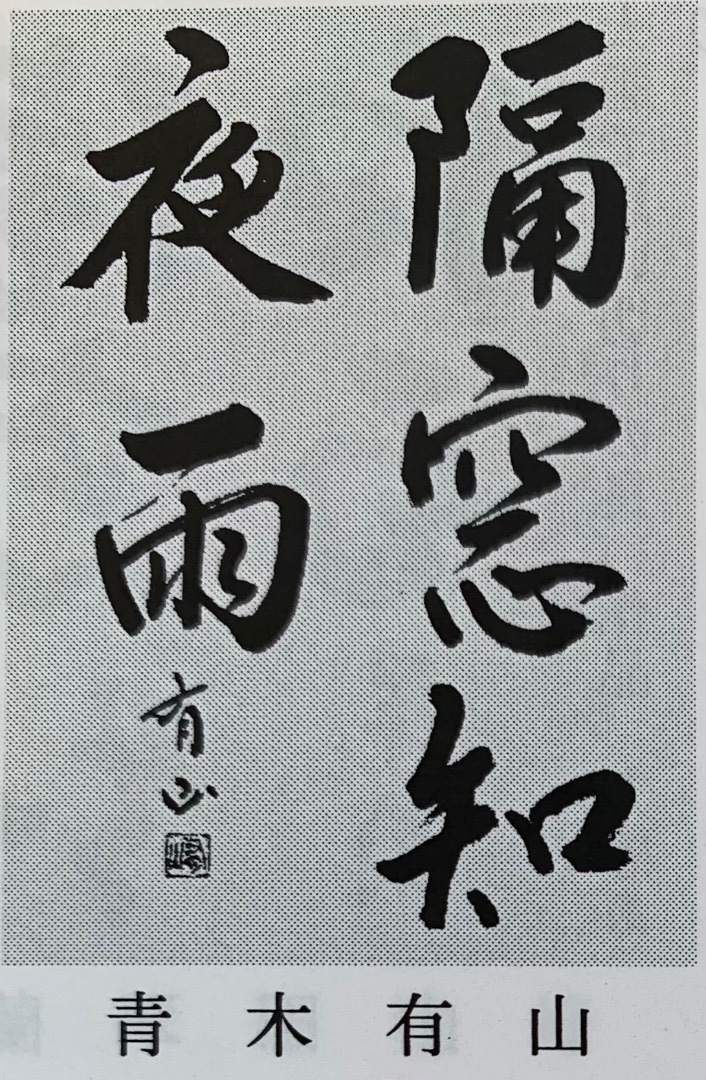 隔窓知
夜雨
有山
青木有山